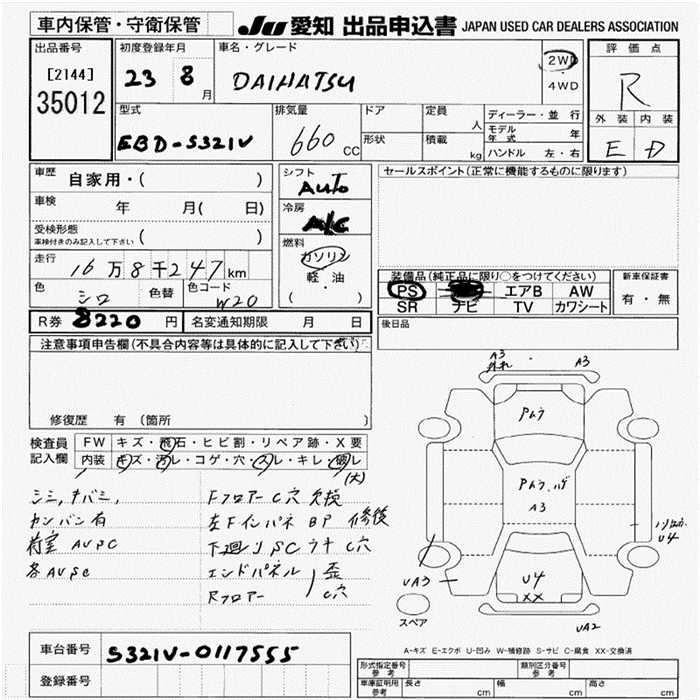 車内保管・守衛保管
JU 愛知 出品申込書 JAPAN USED CAR DEALERS ASSOCIATION
出品番号
[2144]
35012
初度登録年月
23 8 月
車名・グレード
DAIHATSU
2WD
4WD
評価点
R
外装 内装
E D
型式
EBD-S321V
排気量
660 CC
ドア
形状
定員 人
積載 kg
ディーラー・並行
モデル年式 年
ハンドル 左・右
車歴 自家用・( )
車検 年 月( 日)
受検形態
車検付きのみ記入して下さい ( )
走行 16万8千247km
色 シロ 色替 色コード W20
シフト
AUTO
冷房
A/C
燃料
ガソリン
軽・油
( )
セールスポイント(正常に機能するものに限ります)
装備品(純正品に限り○をつけてください)
PS エアB AW
SR ナビ TV カワシート
新車保証書
有・無
R券 8220 円 名変通知期限 月 日
後日品
注意事項申告欄(不具合内容等は具体的に記入して下さい)
修復歴 有 (箇所 )
検査員
記入欄
FW キズ・飛石・ヒビ割・リペア跡・X要
内装 キズ・汚レ・コゲ・穴・スレ・キレ・破レ
(大)
シミ,
カンバン有
荷室 AVSC
各AVSC
Fフロアー C穴 欠損
左Fインパネ BP 修後
下廻り SC ウチ C穴
エンドパネル 歪
Rフロアー C穴
A3
A3
Pムラ
Pムラ、ハゲ
A3
U4
UA3
U4
XX
UA2
スペア
A-キズ E-エクボ U-凹み W-補修跡 S-サビ C-腐食 XX-交換済
車台番号 S321V-0117555
登録番号
形式指定番号
参考
類別区分番号
参考
車庫証明用
参考
長さ cm 幅 cm 高さ cm